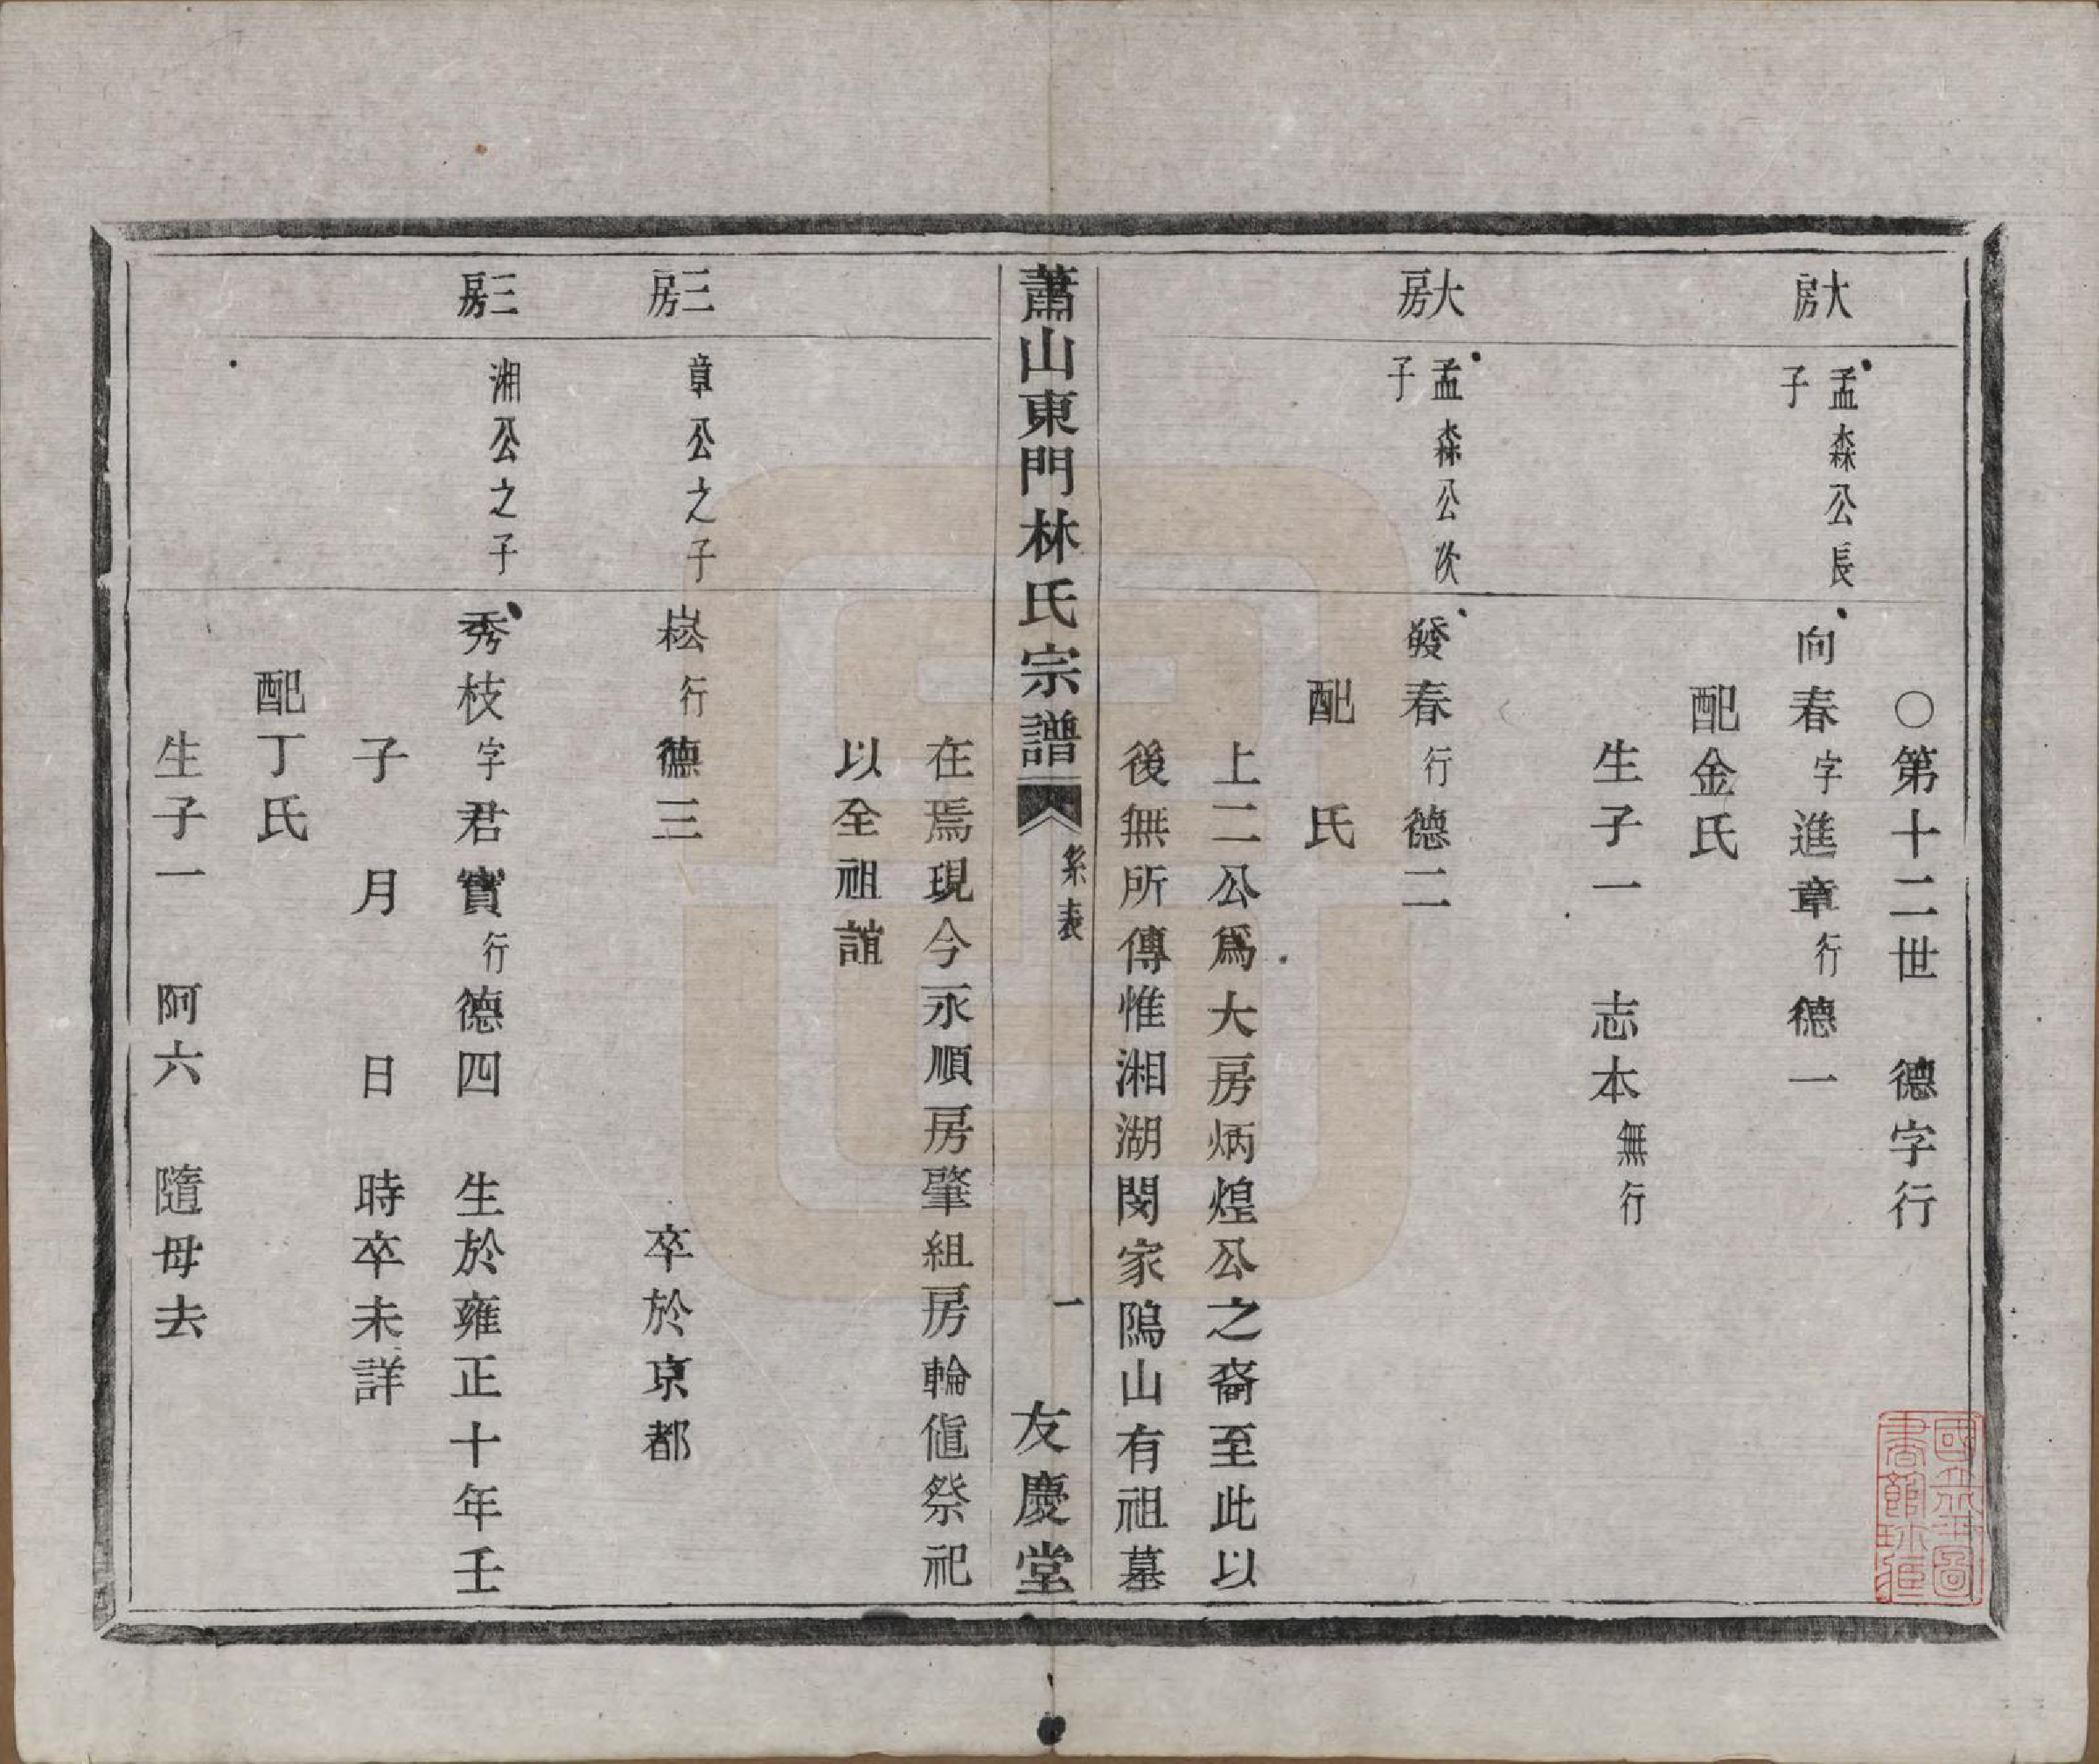 ○第十二世　德字行
大房
孟森公長子
向春字進章行德一
配金氏
生子一　志本無行
大房
孟森公次子
發春行德二
配　氏
上二公爲大房炳煌公之裔至此以
後無所傳惟湘湖閔家隖山有祖墓
蕭山東門林氏宗譜　系表　一　友慶堂
在焉現今永順房肇組房輪值祭祀
以全祖誼
三房
章公之子
崧行德三　卒於京都
三房
湘公之子
秀枝字君實行德四　生於雍正十年壬
子　月　日　時卒未詳
配丁氏
生子一　阿六　隨母去
國立北平圖書館珍藏